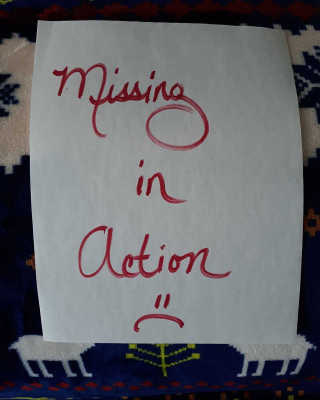 Missing
in
Action